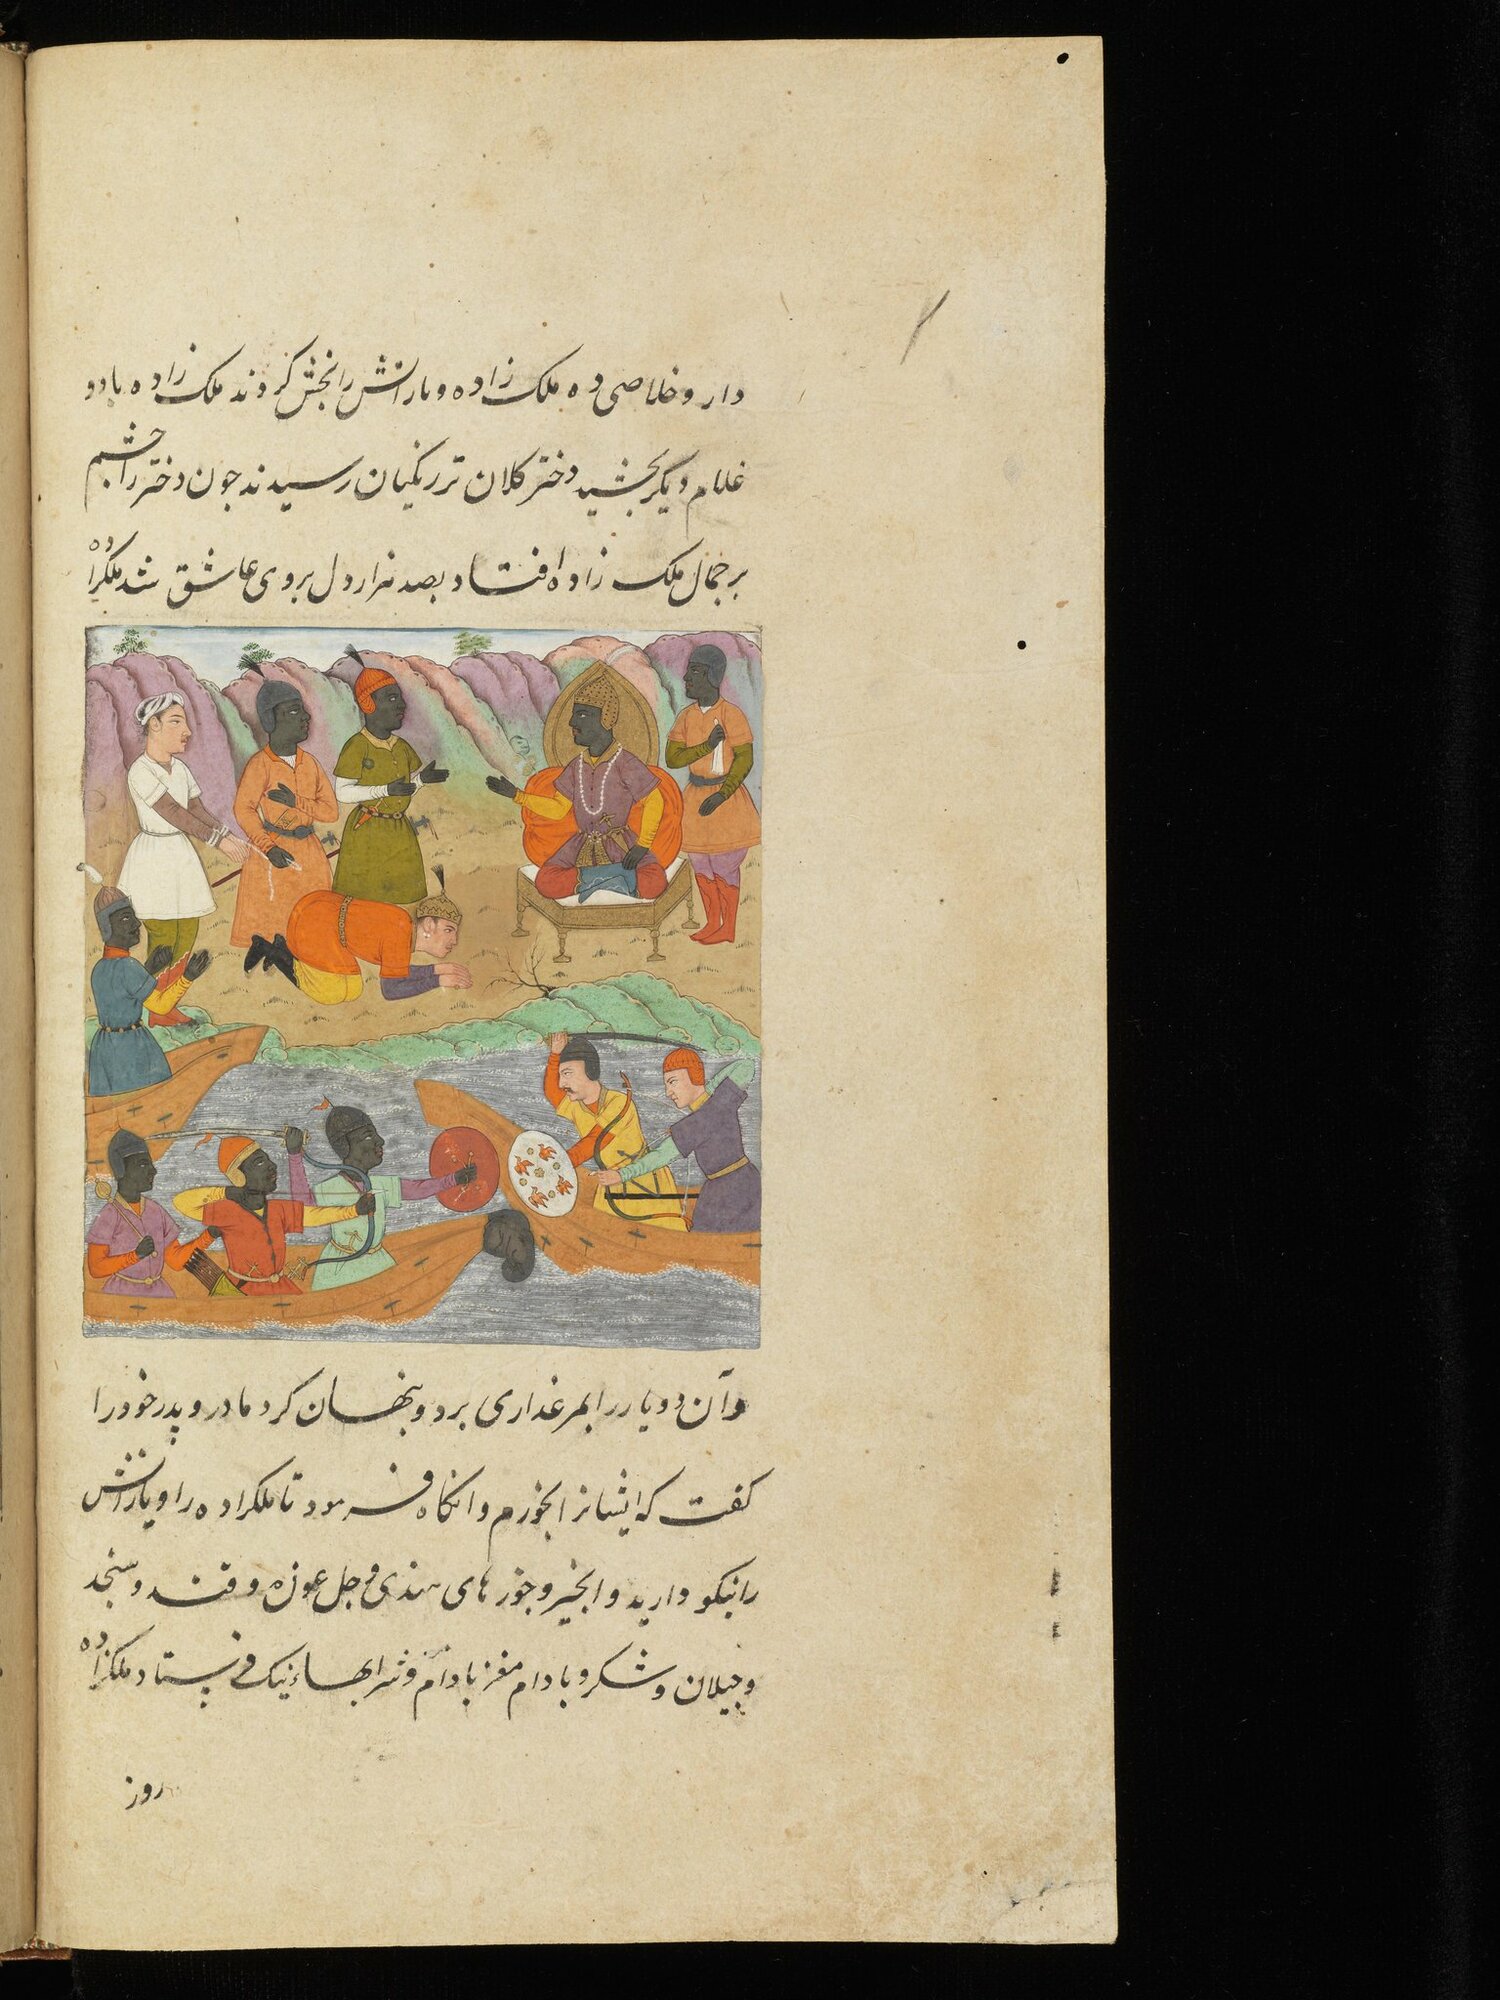 دار و خلاصی ده ملک زاده و یارانش را بخش کردند ملک زاده با دو
غلام دیکر بخشید دختر کلان تر زنکیان رسیدند جون دختر را چشم
بر جمال ملک زاده افتاد بصد هزار دل بروی عاشق شد ملکزاده
و آن دو یار را بمرغذاری برد و پنهان کرد مادر و پدر خود را
کفت که ایشانرا بخوردم و انکاه فرمود تا ملکزاده را و یارانش
را نیکو دارید و انجیر و جوزهای هندی و قند و سنجد
و جیلان و شکر و بادام مغز بادام و شرابهاء نیک فرستاد ملکزاده
روز